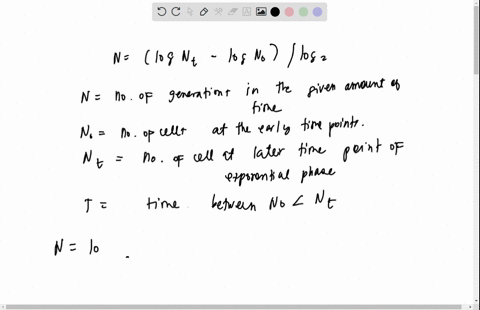 N = (log Nt - log N0) / log 2
N = no. of generations in the given amount of
time
N0 = no. of cells at the early time points.
Nt = no. of cell at later time point of
exponential phase
T = time between N0 < Nt
N = 10